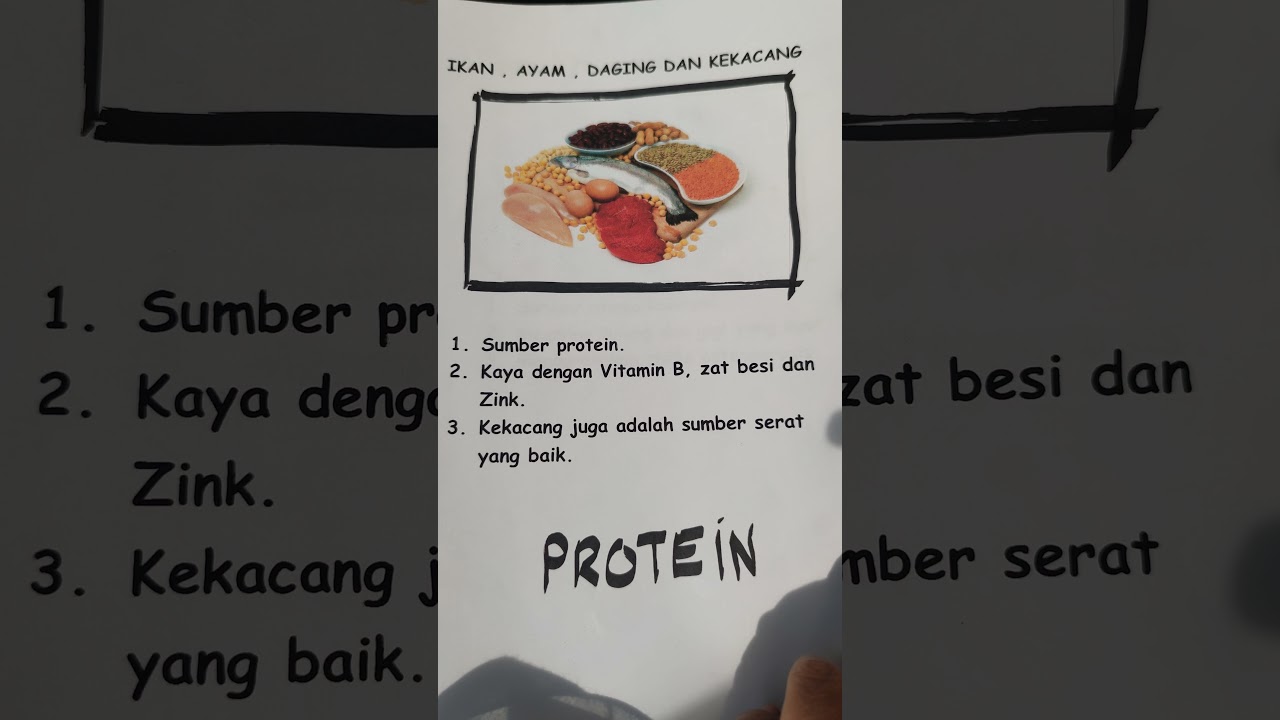 IKAN , AYAM , DAGING DAN KEKACANG
1. Sumber protein.
2. Kaya dengan Vitamin B, zat besi dan
Zink.
3. Kekacang juga adalah sumber serat
yang baik.
PROTEiN